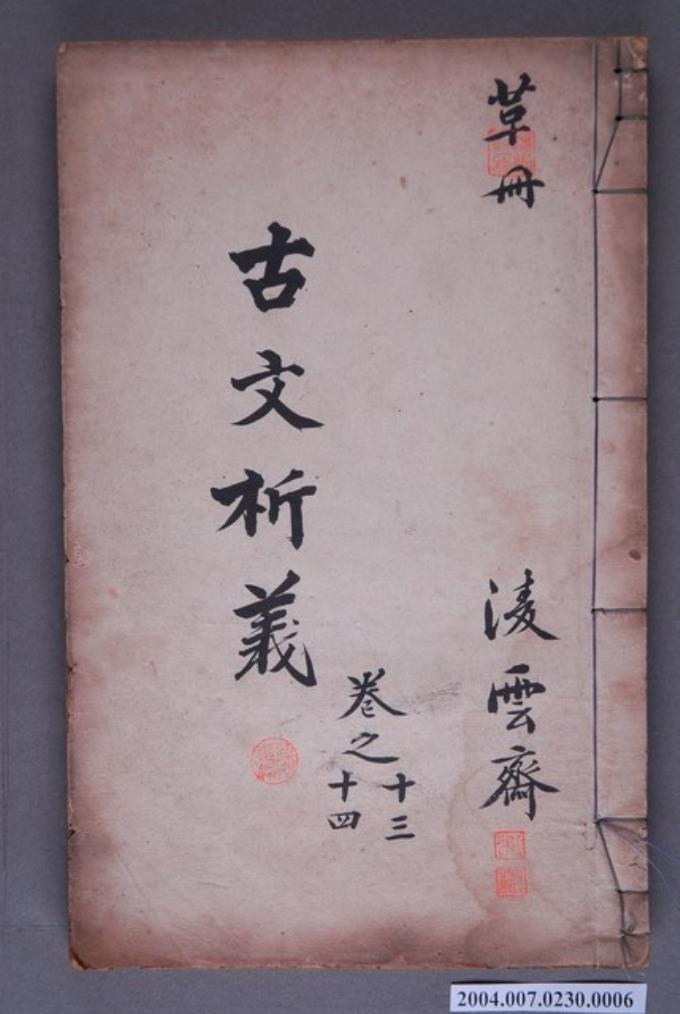 草冊
淩雲齋
古文析義
卷之
十三
十四
2004.007.0230.0006